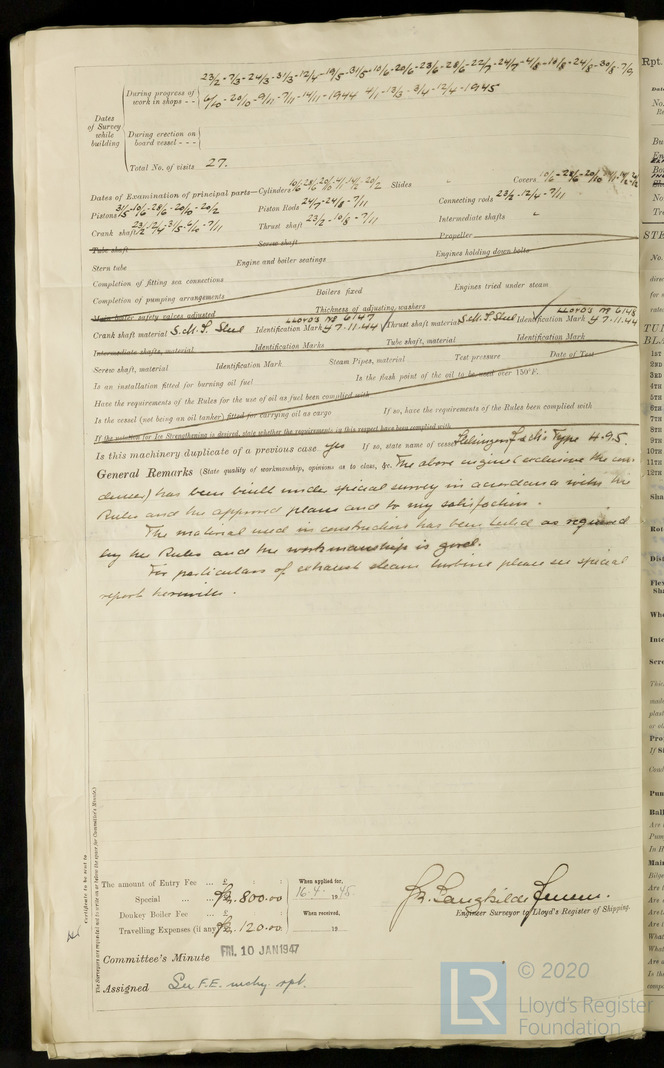 23/2 - 7/3 - 24/3 - 31/3 - 12/4 - 19/5 - 31/5 - 10/6 - 20/6 - 23/6 - 28/6 - 22/7 - 24/7 - 4/8 - 10/8 - 24/8 - 30/8 - 7/9
During progress of work in shops - - 6/10 - 20/10 - 9/11 - 7/11 - 14/11 - 1944 4/1 - 13/3 - 3/4 - 12/4 - 1945
Dates of Survey while building
During erection on board vessel - - -
Total No. of visits 27.
Dates of Examination of principal parts—Cylinders Slides Covers
Pistons Piston Rods 24/7 - 24/8 - 7/11 Connecting rods 23/2 - 12/4 - 7/11
Crank shaft Thrust shaft 23/2 - 10/8 - 7/11 Intermediate shafts
Tube shaft Screw shaft Propeller
Stern tube Engine and boiler seatings Engines holding down bolts
Completion of fitting sea connections
Completion of pumping arrangements Boilers fixed Engines tried under steam
Main boiler safety valves adjusted Thickness of adjusting washers
Crank shaft material S.M.I. Steel Identification Mark LLOYD'S No 6147 7.11.44 Thrust shaft material S.M.I. Steel Identification Mark LLOYD'S No 6148 7.11.44
Intermediate shafts, material Identification Marks Tube shaft, material Identification Mark
Screw shaft, material Identification Mark Steam Pipes, material Test pressure Date of Test
Is an installation fitted for burning oil fuel Is the flash point of the oil to be used over 150°F.
Have the requirements of the Rules for the use of oil as fuel been complied with
Is the vessel (not being an oil tanker) fitted for carrying oil as cargo If so, have the requirements of the Rules been complied with
If the notation for Ice Strengthening is desired, state whether the requirements in this respect have been complied with
Is this machinery duplicate of a previous case yes If so, state name of vessel Helsingør Type 495.
General Remarks (State quality of workmanship, opinions as to class, &c. The above engine (exclusive the con-
denser) has been built under special survey in accordance with the
Rules and the approved plans and to my satisfaction.
The material used in construction has been tested as required
by the Rules and the workmanship is good.
For particulars of exhaust steam turbine please see special
report herewith.
Certificate to be sent to
The Surveyors are requested not to write on or below the space for Committee's Minute.
The amount of Entry Fee ... £ : : When applied for,
Special ... ... Kr. 800.00 16.4. 1945
Donkey Boiler Fee ... £ : : When received,
Travelling Expenses (if any) Kr. 120.00 19
Langkilde Jensen.
Engineer Surveyor to Lloyd's Register of Shipping.
Committee's Minute FRI. 10 JAN 1947
Assigned See F.E. mchy. rpt.
LR © 2020
Lloyd's Register
Foundation
Rpt.